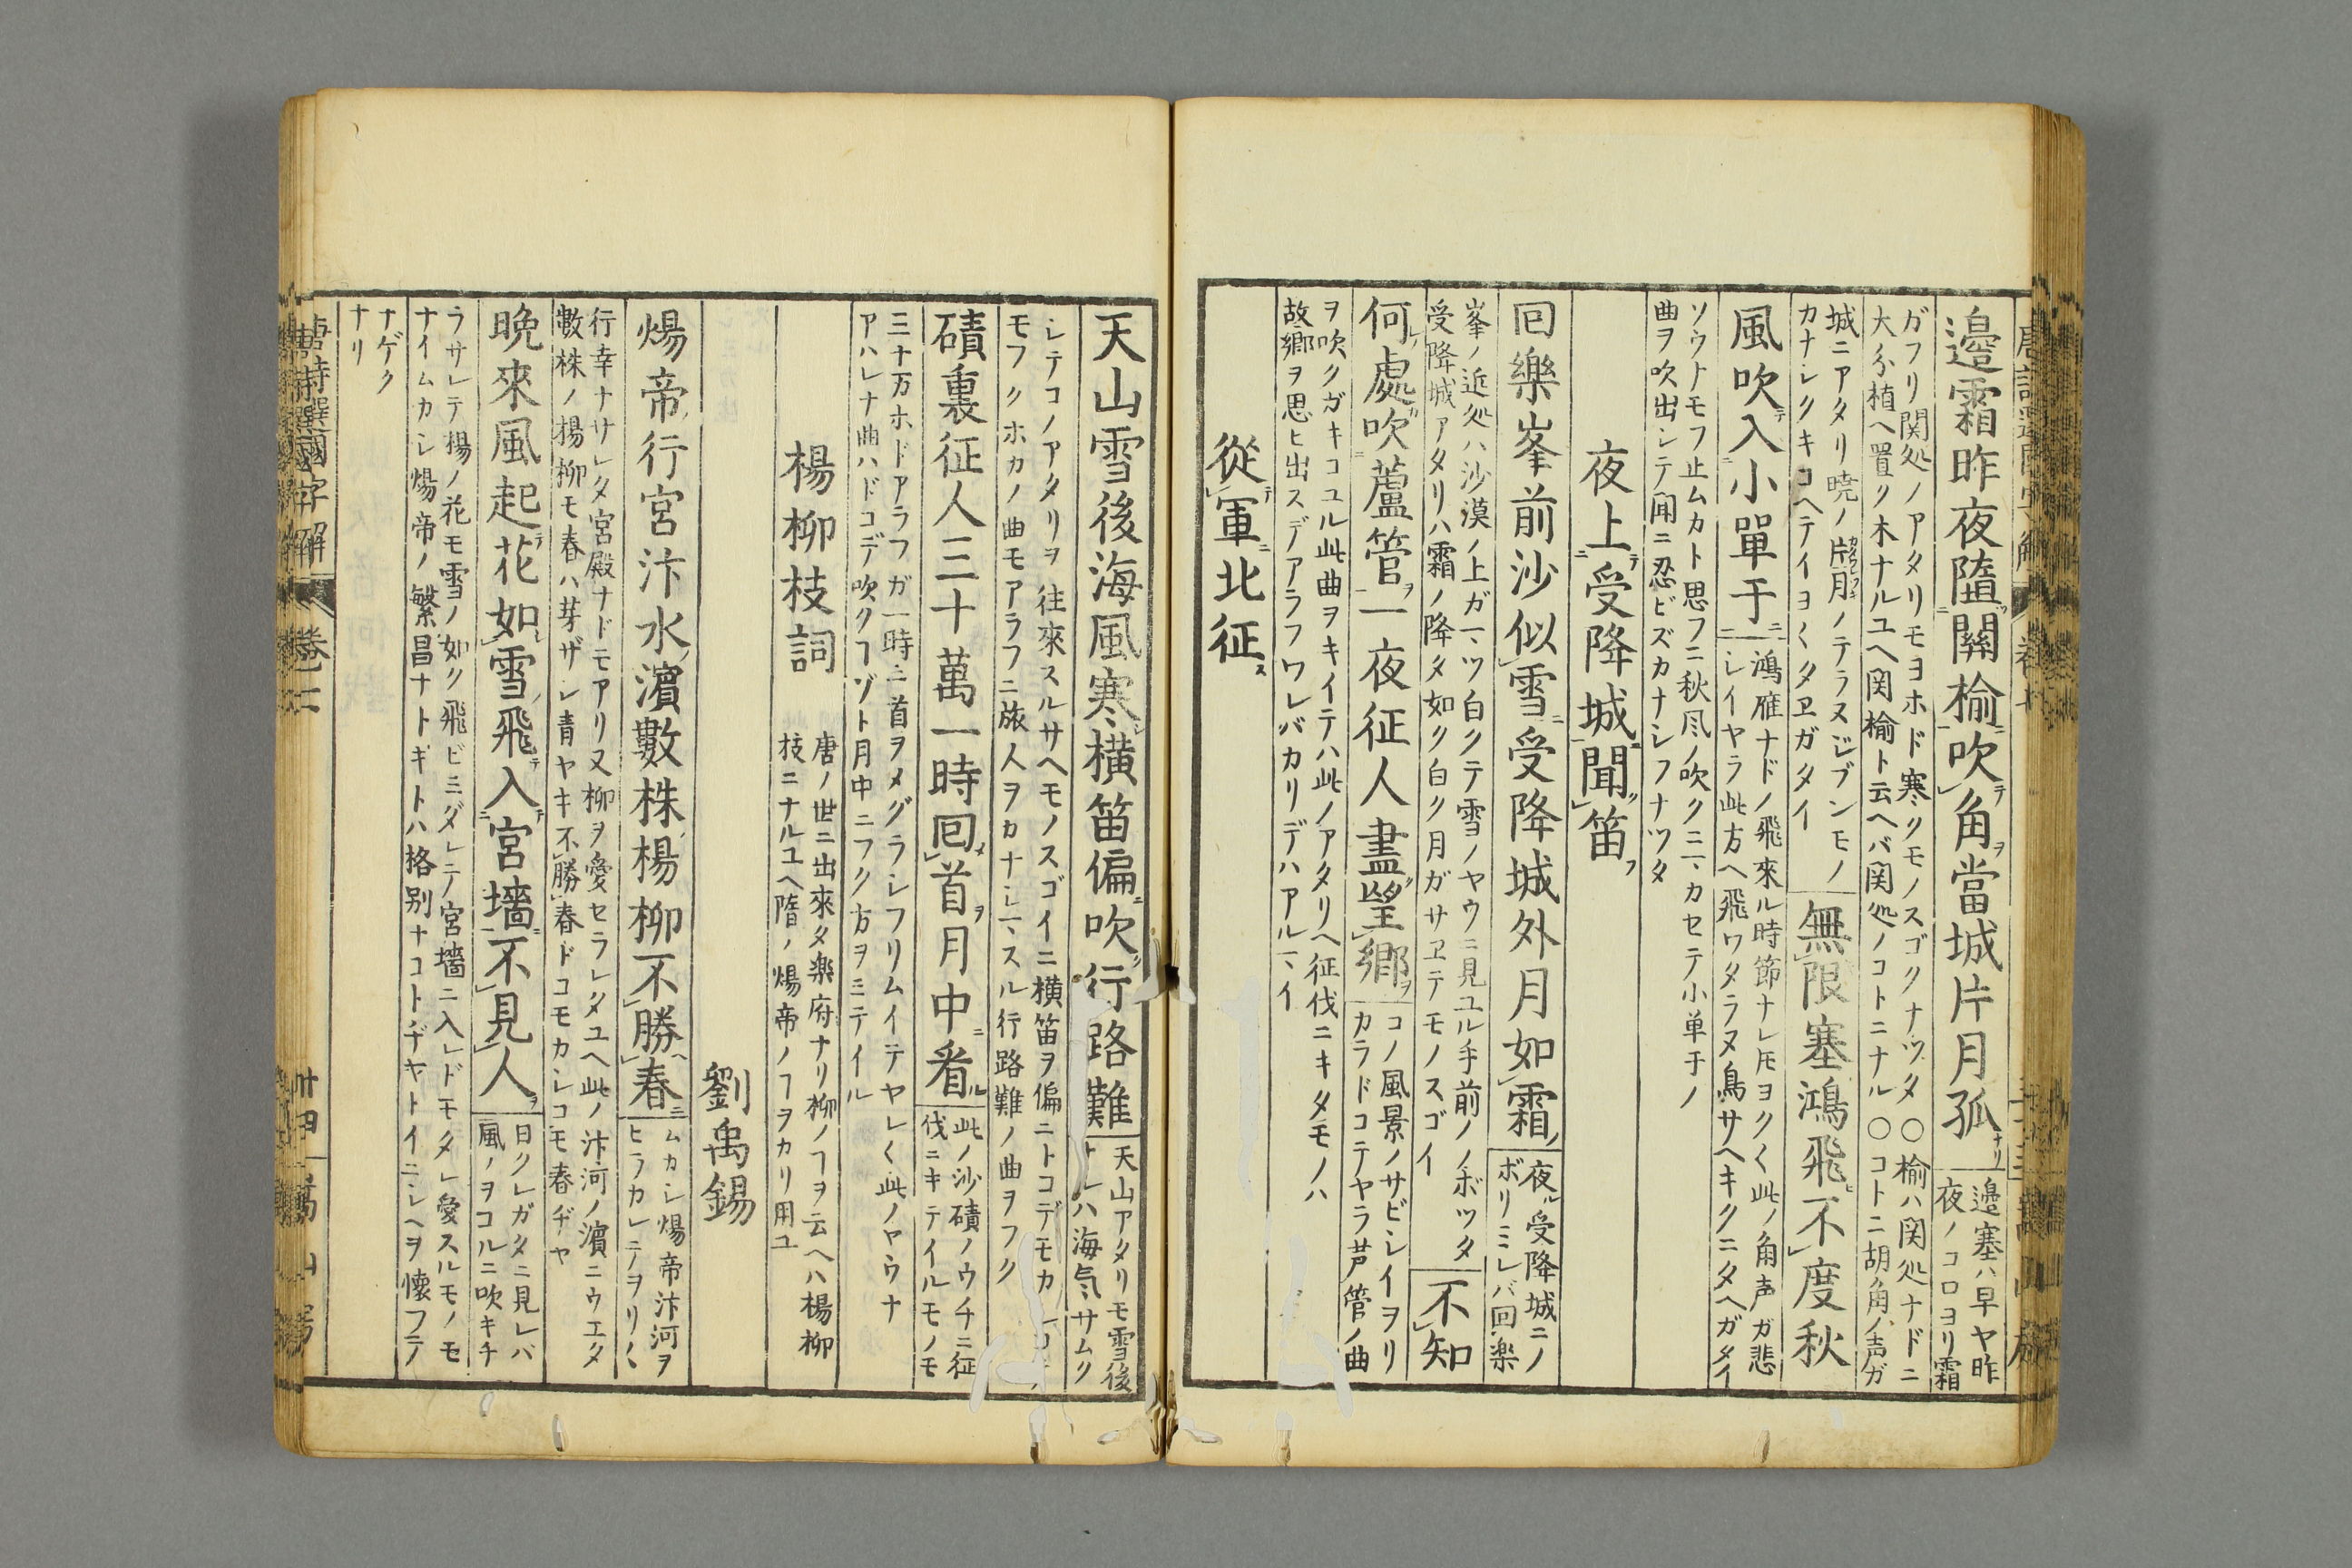 邊霜昨夜隨關榆吹角當城片月孤 邊塞ハ早ヤ昨
夜ノコロヨリ霜
ガフリ関処ノアタリモヨホド寒クモノスゴクナツタ○榆ハ関処ナドニ
大分植ヘ置ク木ナルユヘ関榆ト云ヘバ関処ノコトニナル○コトニ胡角ノ声ガ
城ニアタリ暁ノ片月ノテラヌジブンモノ
カナシクキコヘテイヨ〱タヱガタイ
無限塞鴻飛不度秋
風吹入小單于 鴻雁ナドノ飛來ル時節ナレ𪜈ヨク〱此ノ角声ガ悲
シイヤラ此方ヘ飛ワタラヌ鳥サヘキクニタヘガタイ
ソウトモフ止ムカト思フニ秋風ノ吹クニヽカセテ小単于ノ
曲ヲ吹出シテ聞ニ忍ビズカナシフナツタ
夜上受降城聞笛
回樂峯前沙似雪受降城外月如霜 夜受降城ニノ
ボリミレバ回楽
峯ノ近処ハ沙漠ノ上ガ一ツ白クテ雪ノヤウニ見ユル手前ノノボツタ
受降城アタリハ霜ノ降タ如ク白ク月ガサヱテモノスゴイ
不知
何處吹蘆管一夜征人盡望鄉 コノ風景ノサビシイヲリ
カラドコテヤラ芦管ノ曲
ヲ吹クガキコユル此曲ヲキイテハ此ノアタリヘ征伐ニキタモノハ
故郷ヲ思ヒ出スデアラフワレバカリデハアルヽイ
從軍北征
天山雪後海風寒橫笛偏吹行路難 天山アタリモ雪後
トレハ海気サムク
シテコノアタリヲ往來スルサヘモノスゴイニ横笛ヲ偏ニトコデモカ
モフクホカノ曲モアラフニ旅人ヲカナシヽスル行路難ノ曲ヲフク
磧裏征人三十萬一時回首月中看 此ノ沙磧ノウチニ征
伐ニキテイルモノモ
三十万ホドアラフガ一時ニ首ヲメグラシフリムイテヤレ〱此ノヤウナ
アハレナ曲ハドコデ吹クヿゾト月中ニフク方ヲミテイル
楊柳枝詞 唐ノ世ニ出來タ楽府ナリ柳ノヿヲ云ヘハ楊柳
枝ニナルユヘ隋ノ煬帝ノヿヲカリ用ユ
劉禹錫
煬帝行宮汴水濱數株楊柳不勝春 ムカシ煬帝汴河ヲ
ヒラカレテヲリ〱
行幸ナサレタ宮殿ナドモアリ又柳ヲ愛セラレタユヘ此ノ汴河ノ濱ニウエタ
數株ノ楊柳モ春ハ芽ザシ青ヤキ不勝春ドコモカシコモ春ヂヤ
晚來風起花如雪飛入宮墻不見人 日クレガタニ見レバ
風ノヲコルニ吹キチ
ラサレテ楊ノ花モ雪ノ如ク飛ビミダレテノ宮墻ニ入レドモタレ愛スルモノモ
ナイムカシ煬帝ノ繁昌ナトキトハ格別ナコトヂヤトイニシヘヲ懐フテ
ナゲク
ナリ
唐詩選國字解 卷七 卅四 嵩山房